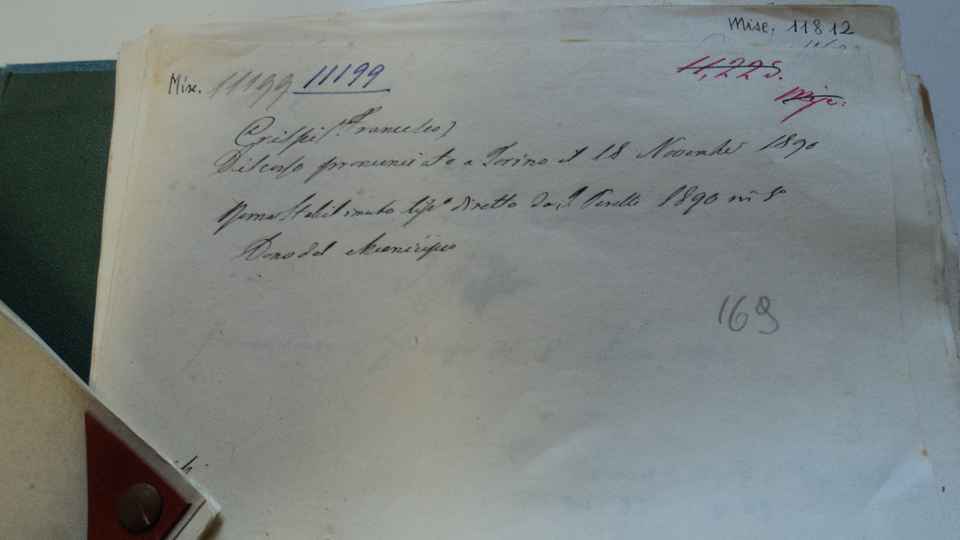 Misc. 11812
Misc. 11199 11199
11,225.
Misc.
Crispi (Francesco)
Discorso pronunciato a Torino il 18 Novembre 1890
Roma Stabilimento tipº diretto da Perelli 1890 in 8º
Dono del Municipio
169